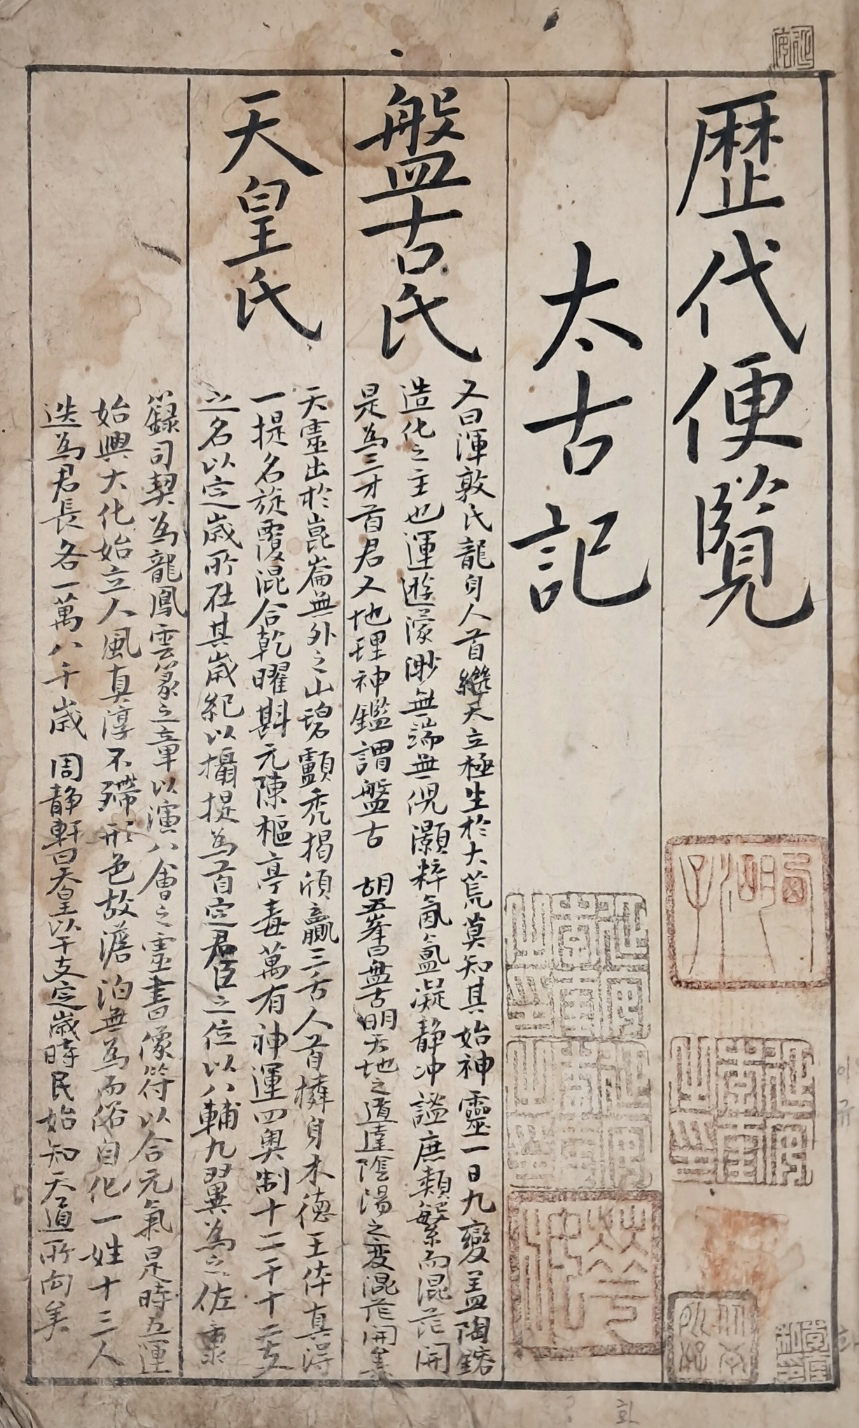 歷代便覽
太古記
盤古氏
又曰渾敦氏龍身人首繼天立極生於大荒莫知其始神靈一日九變盖陶鎔
造化之主也運遊濛渺無端無倪灝粹氤氳凝静冲謐庶類繁而混茫開
是為三才首君又地理神鑑謂盤古 胡五峯曰盤古明天地之道達陰陽之变混茫開矣
天皇氏
天靈出於崑崙無外之山碧顱秃揭頎贏三舌人首身木德王体真淂
一提名旋覆混合乾曜斟元陳樞亭毒萬有神運四奥制十二干十二支
之名以定歲所在其歲紀以攝提為首定君臣之位以八輔九翼為之佐禀
籙司契為龍鳳雲篆之章以演八會之靈書像符以合元氣是時五運
始興大化始立人風真淳不滯形色故澹泊無為而俗自化一姓十三人
迭為君長各一萬八千歲 周静軒曰天皇以干支定歲時民始知天道所向矣